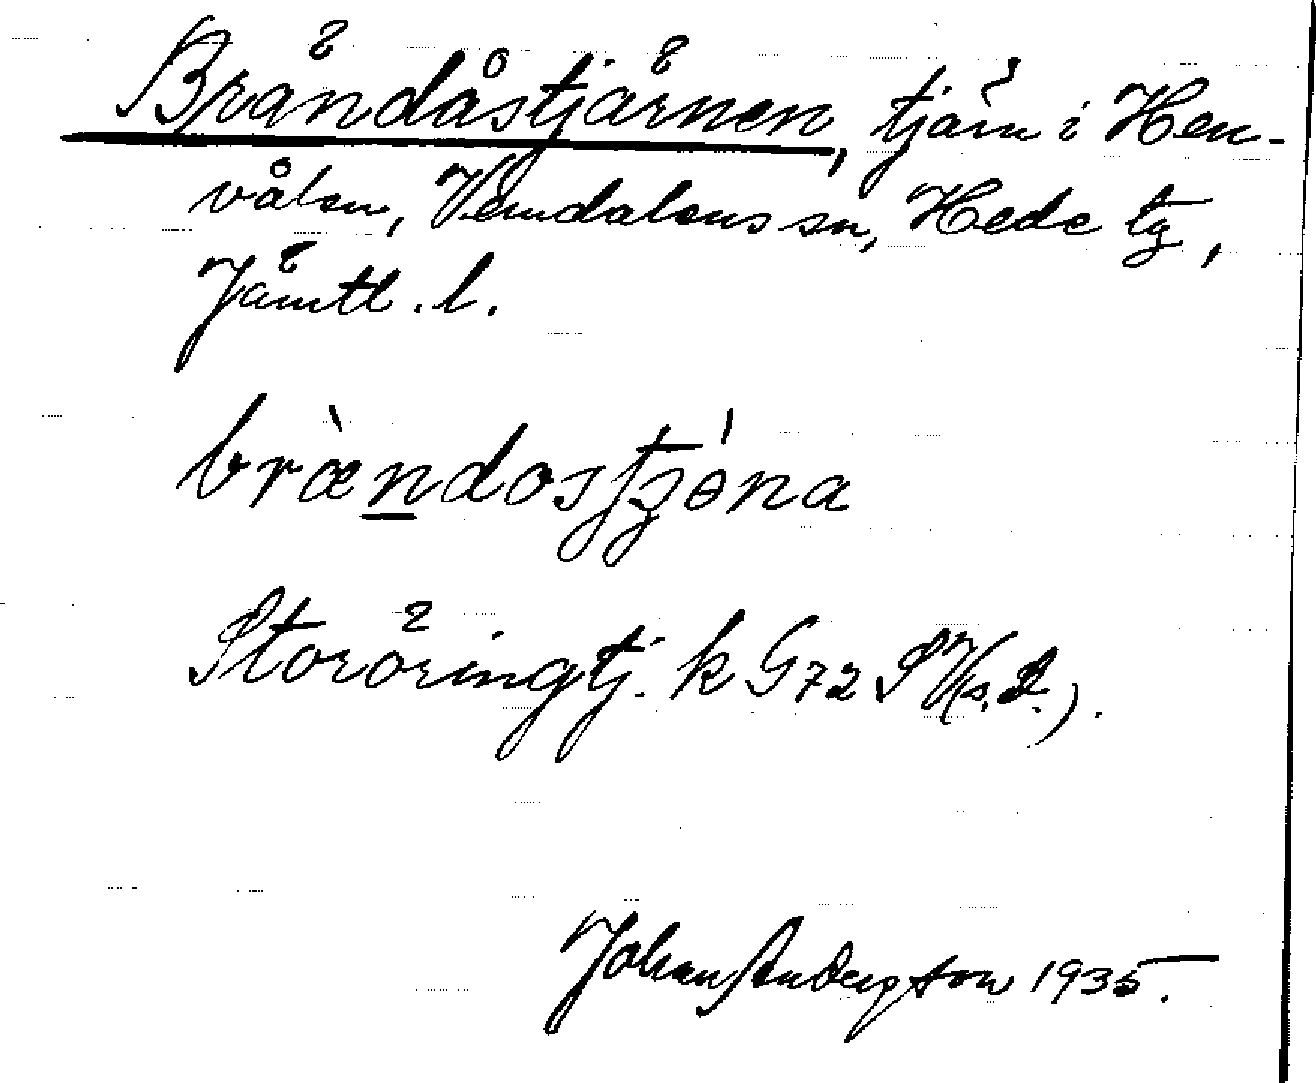 Brändåstjärnen, tjärn i Hen-
vålen, Vemdalens sn, Hede tg,
Jämtl. l.
bræ̀ndostjöna
Storöringtj. k G72 SV(s.d.).
Johan Anderson 1935.